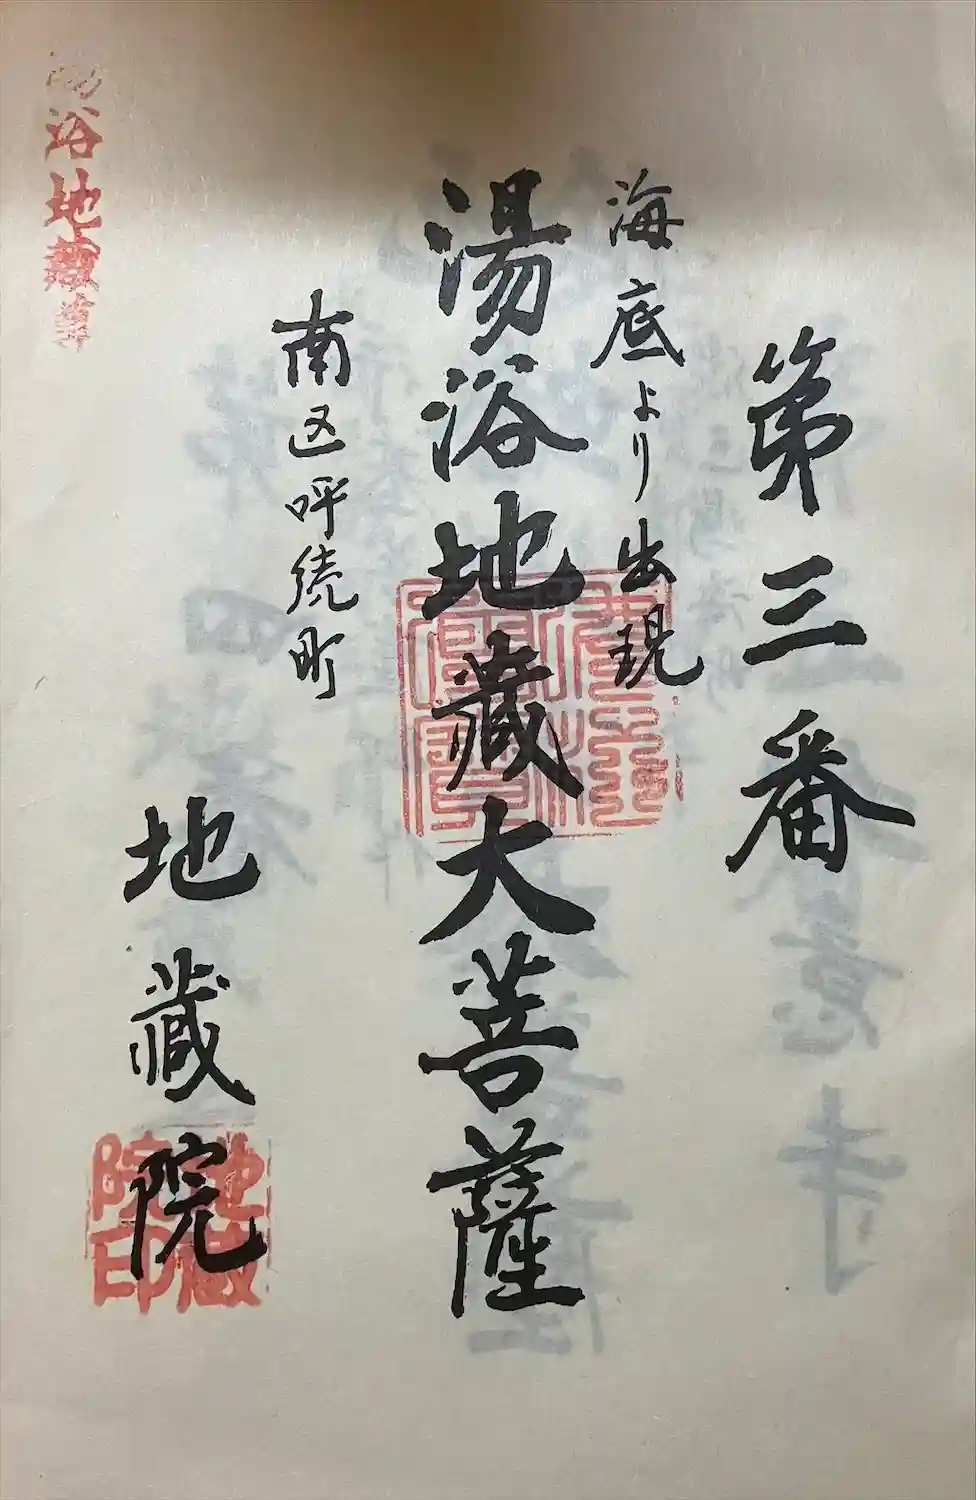 第三番
海底より出現
湯浴地蔵大菩薩
南区呼続町
地蔵院
地蔵院印
湯浴地蔵尊